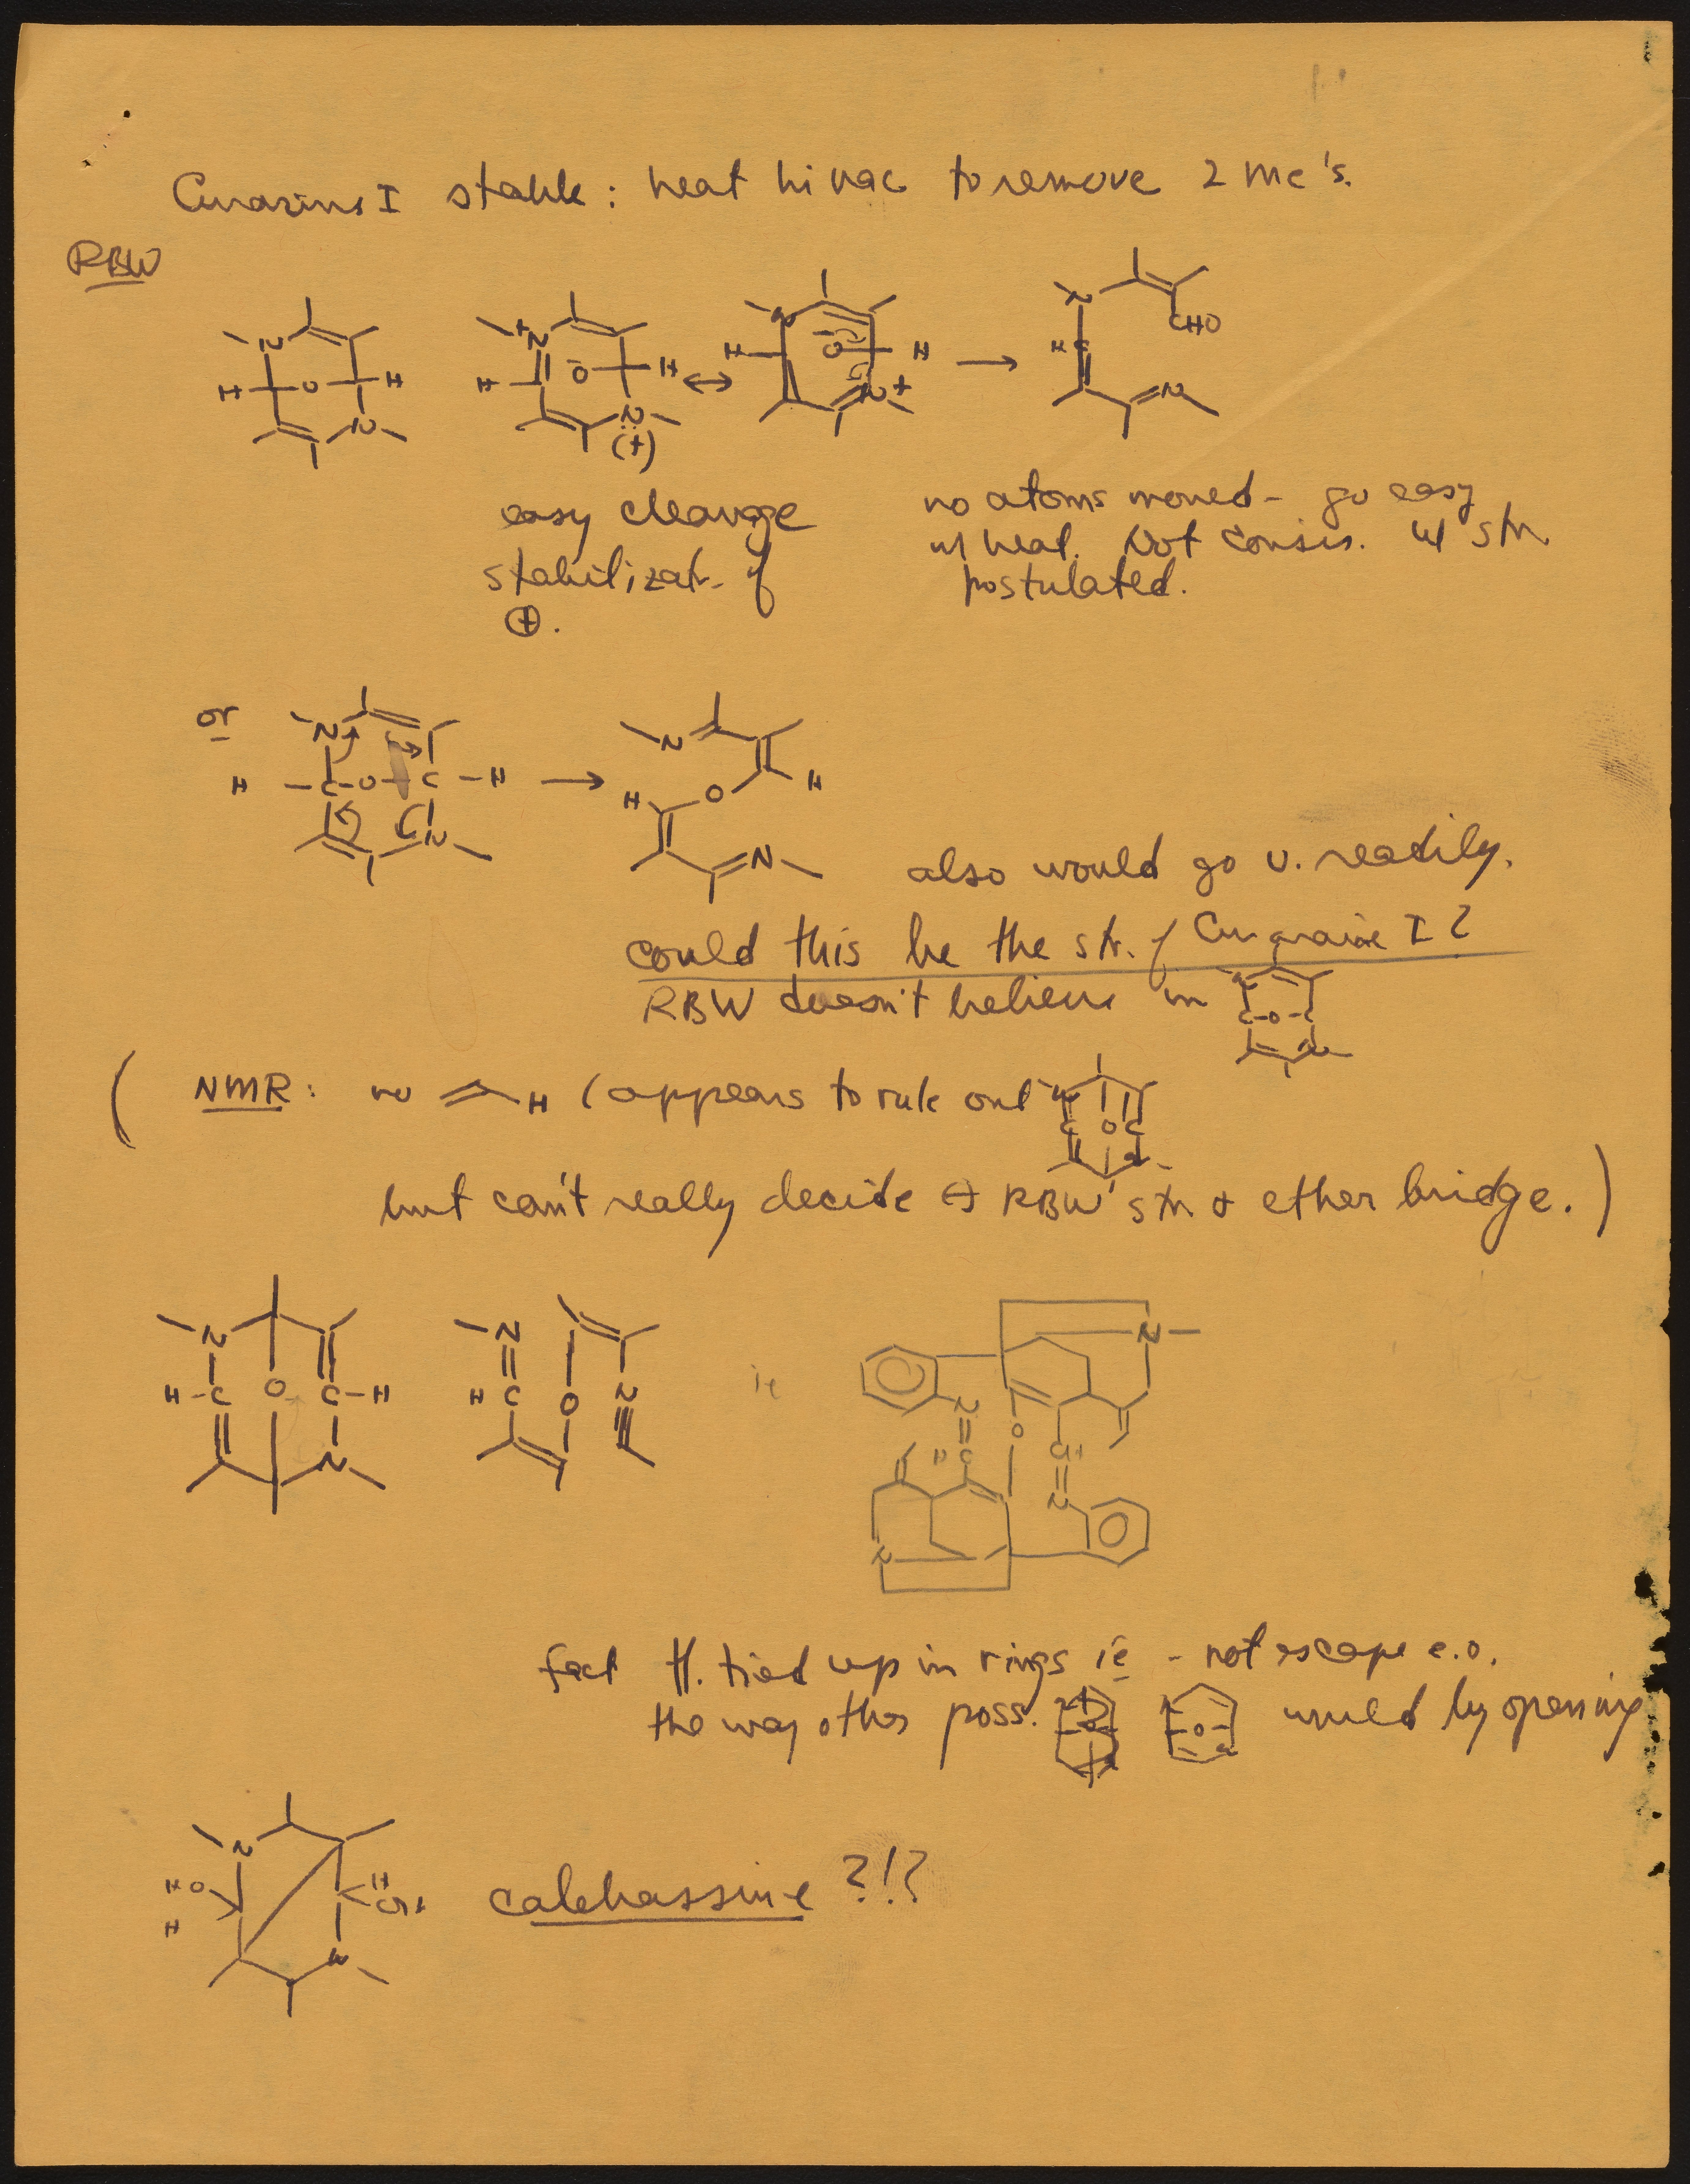 Curarine I stable: heat hi vac to remove 2 Me's.
RBW
N H O H N
+N H O⁻ H N (+)
↔
N H O⁻ H N+
→
N H C CHO N
easy cleavage
stabilizatn. of
⊕.
no atoms moved - go easy
w/ heat. Not consis. w/ str.
postulated.
or
N H C O C H N
→
N H O H N
also would go v. readily.
could this be the str. of Curarine I?
RBW doesn't believe in
C-O-C
(NMR: no =H (appears to rule out
C O C
but can't really decide ↔ RBW's str & ether bridge.)
N H-C O C-H N
N H C O N
ie
N
N O
H C CH
N
N
fact tt. tied up in rings ie - not escape e.o.
the way other poss. would by opening
N HO H H OH N
calebassine ?!?